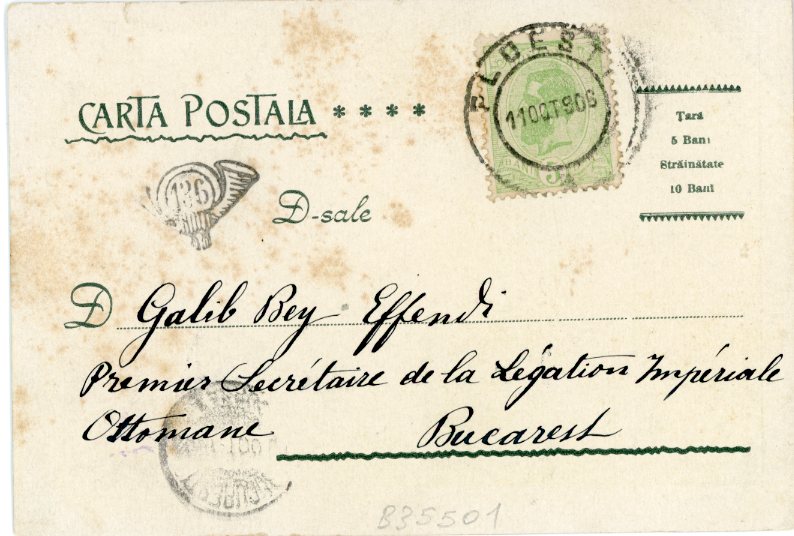 CARTA POSTALA ****
PLOESTI
11 OCT 906
BANI 5
Țară
5 Bani
Străinătate
10 Bani
136
D-sale
D Galib Bey Effendi
Premier Secrétaire de la Légation Impériale
Ottomane Bucarest
B35501